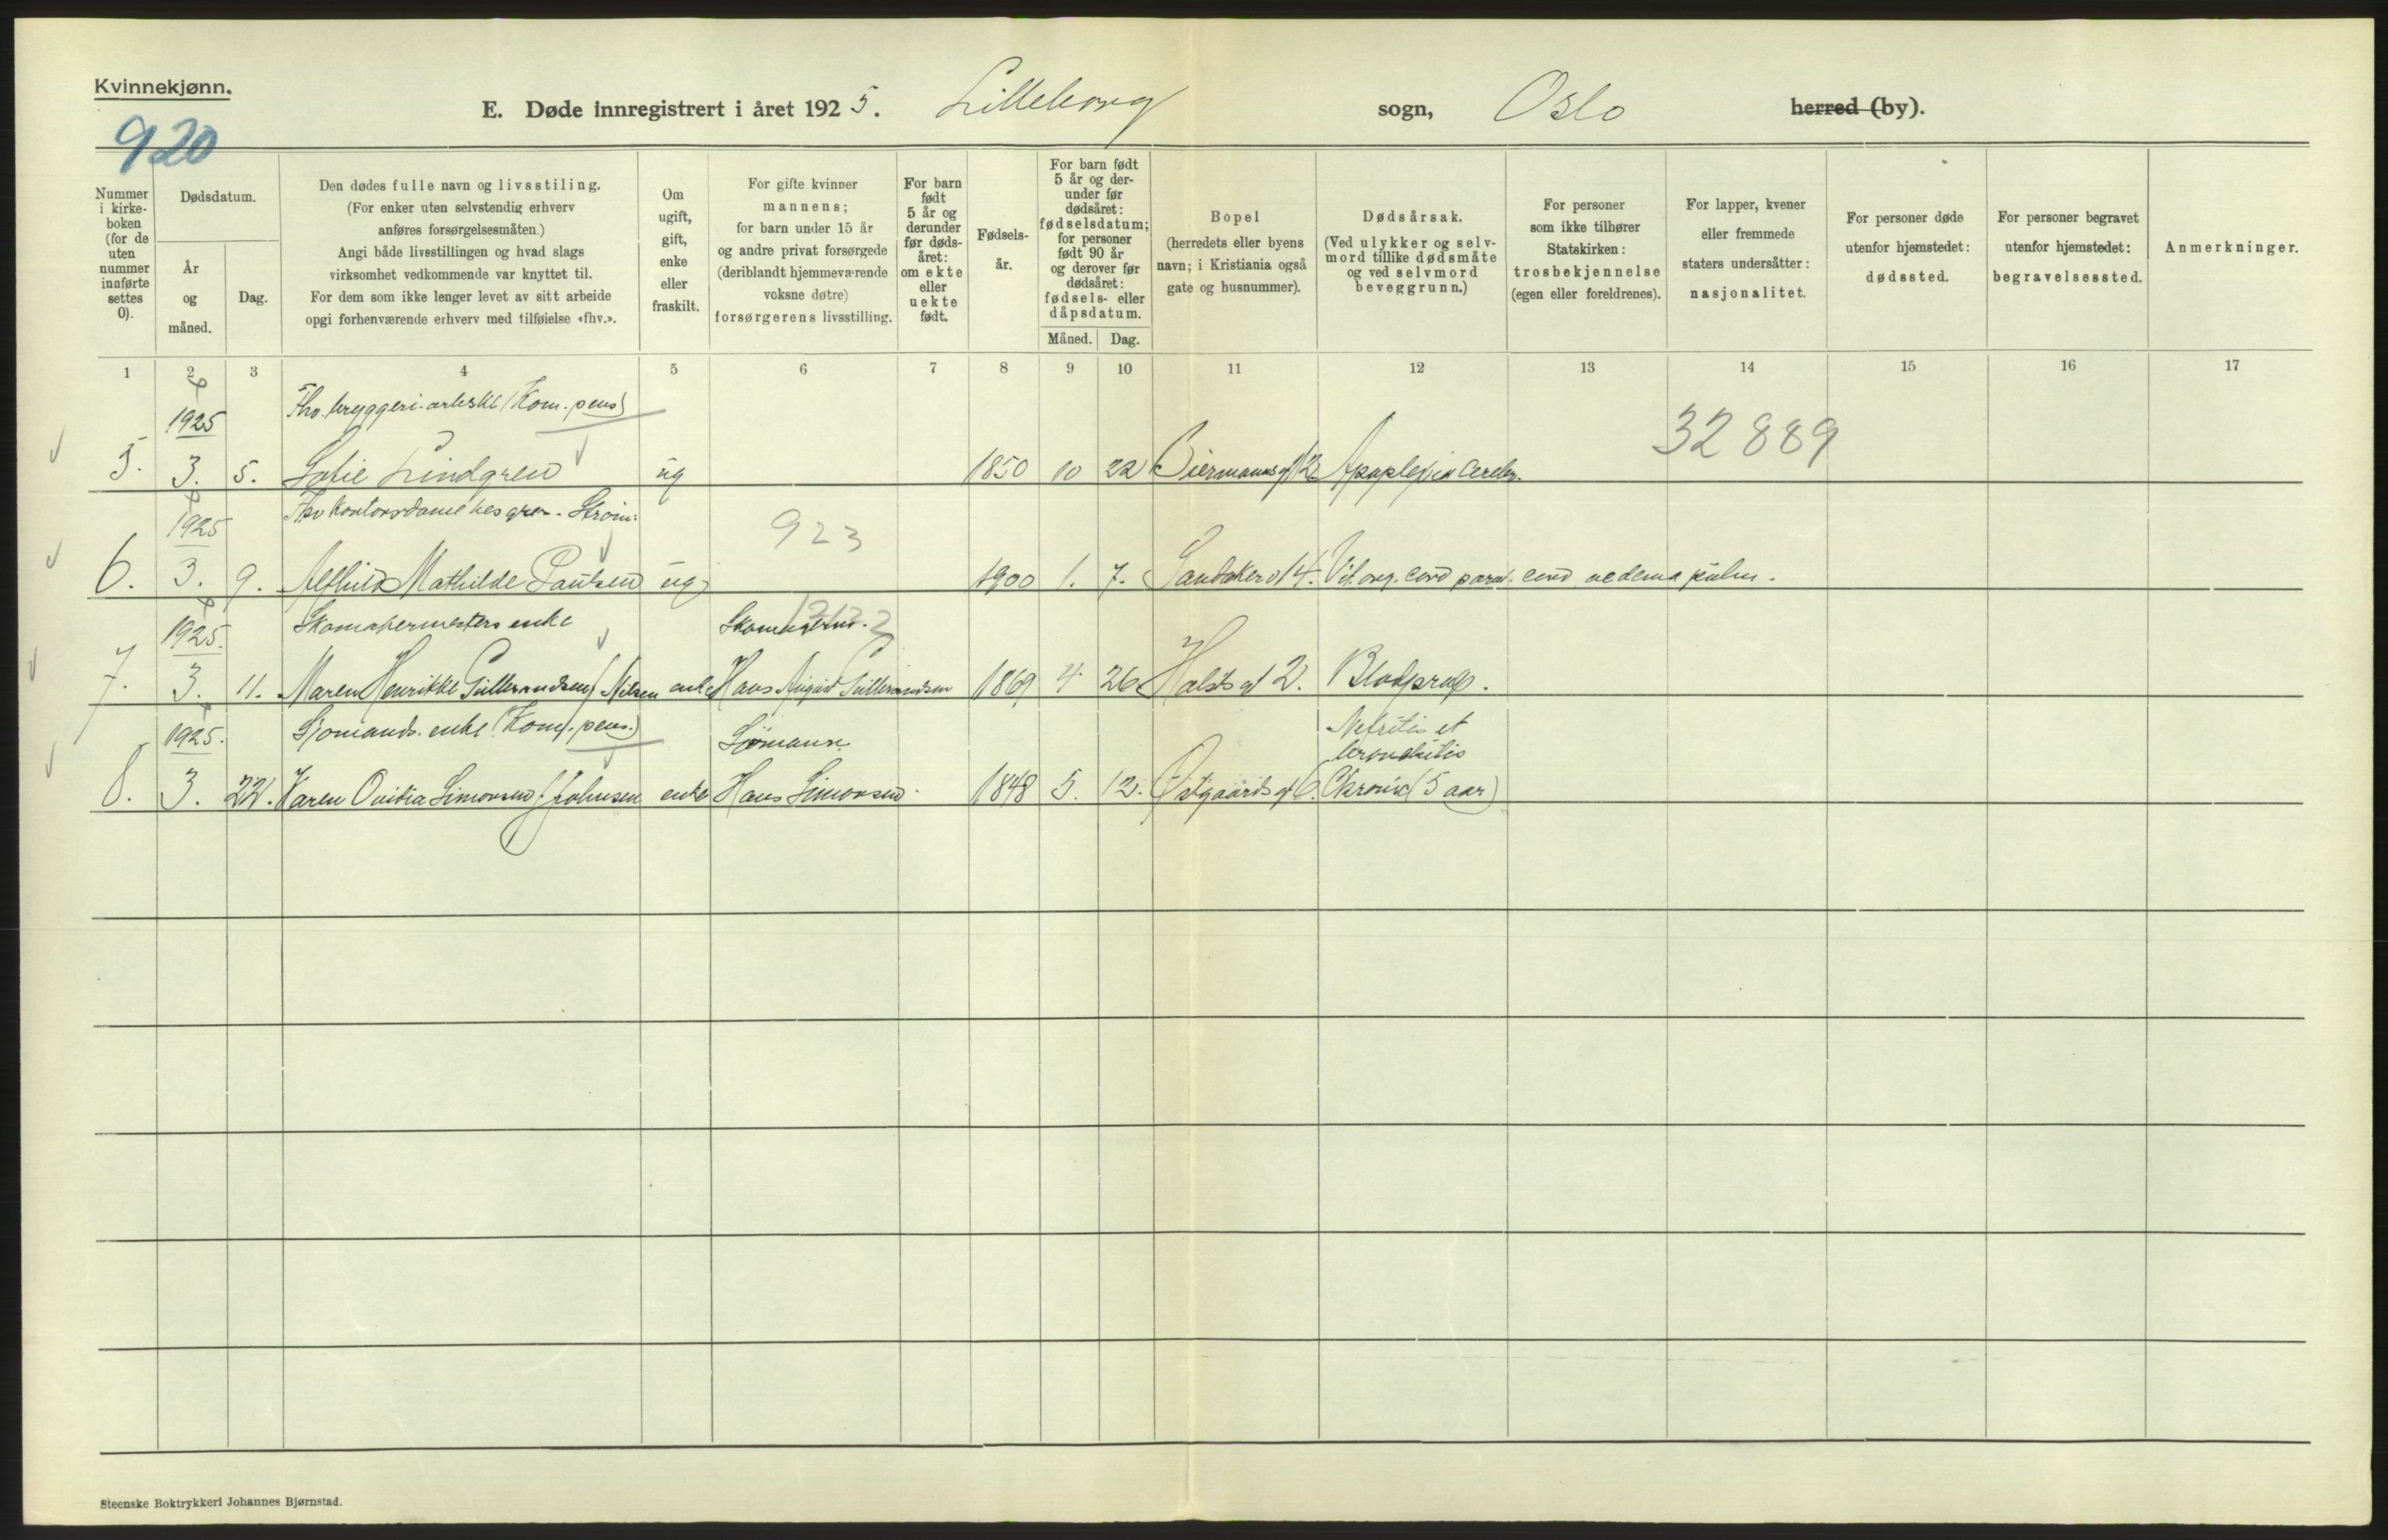 Kvinnekjønn.
920
E. Døde innregistrert i året 1925. Lilleborg sogn, Oslo herred (by).
Nummer i kirke-boken (for de uten nummer innførte settes 0).
Dødsdatum.
År og måned.
Dag.
Den dødes fulle navn og livsstiling.
(For enker uten selvstendig erhverv
anføres forsørgelsesmåten.)
Angi både livsstillingen og hvad slags
virksomhet vedkommende var knyttet til.
For dem som ikke lenger levet av sitt arbeide
opgi forhenværende erhverv med tilføielse «fhv.».
Om ugift, gift, enke eller fraskilt.
For gifte kvinner
mannens;
for barn under 15 år
og andre privat forsørgede
(deriblandt hjemmeværende
voksne døtre)
forsørgerens livsstilling.
For barn født 5 år og derunder før døds-året: om ekte eller uekte født.
Fødsels-år.
For barn født 5 år og der-under før dødsåret: fødselsdatum; for personer født 90 år og derover før dødsåret: fødsels- eller dåpsdatum.
Måned. Dag.
Bopel
(herredets eller byens
navn; i Kristiania også
gate og husnummer).
Dødsårsak.
(Ved ulykker og selv-
mord tillike dødsmåte
og ved selvmord
beveggrunn.)
For personer
som ikke tilhører
Statskirken:
trosbekjennelse
(egen eller foreldrenes).
For lapper, kvener
eller fremmede
staters undersåtter:
nasjonalitet.
For personer døde
utenfor hjemstedet:
dødssted.
For personer begravet
utenfor hjemstedet:
begravelsessted.
Anmerkninger.
1 2 3 4 5 6 7 8 9 10 11 12 13 14 15 16 17
1925 Fhv. bryggeri-arbeske (Kom. pens)
32889
5. 3. 5. Sofie Lindgren ug 1850 10 22 Biermanns g 12 Apoplexia cerebr.
1925 Fhv kontordame hos
923
6. 3. 9. Alfhild Mathilde Paulsen ug 1900 1. 7. Sandakerv 14. Vit. org. cord paral. cord oedema pulm.
1925. Skomakermesters enke
7. 3. 11. Maren Henrikke Gulbrandsen f Nilsen enke Hans August Gulbrandsen 1869 4 26 Holsts g 2. Blodprop.
1925. Sjømands enke (Kom. pens.) Sjømann Nefritis et
bronchitis
8. 3. 22. Karen Ovidia Simonsen f Johnsen enke Hans Simonsen 1848 5. 12. Østgaards g 6. Chronic (5 aar)
Steenske Boktrykkeri Johannes Bjørnstad.